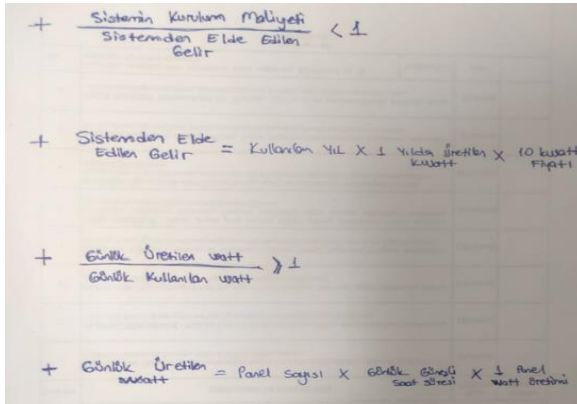 + Sistemin Kurulum Maliyeti
Sistemden Elde Edilen < 1
Gelir
+ Sistemden Elde
Edilen Gelir = Kullanılan Yıl X 1 Yılda Üretilen X 10 kwatt
kwatt Fiyatı
+ Günlük Üretilen watt
Günlük Kullanılan watt ⩾ 1
+ Günlük Üretilen = Panel Sayısı X Günlük Güneşli X 1 Panel
watt saat süresi watt üretimi